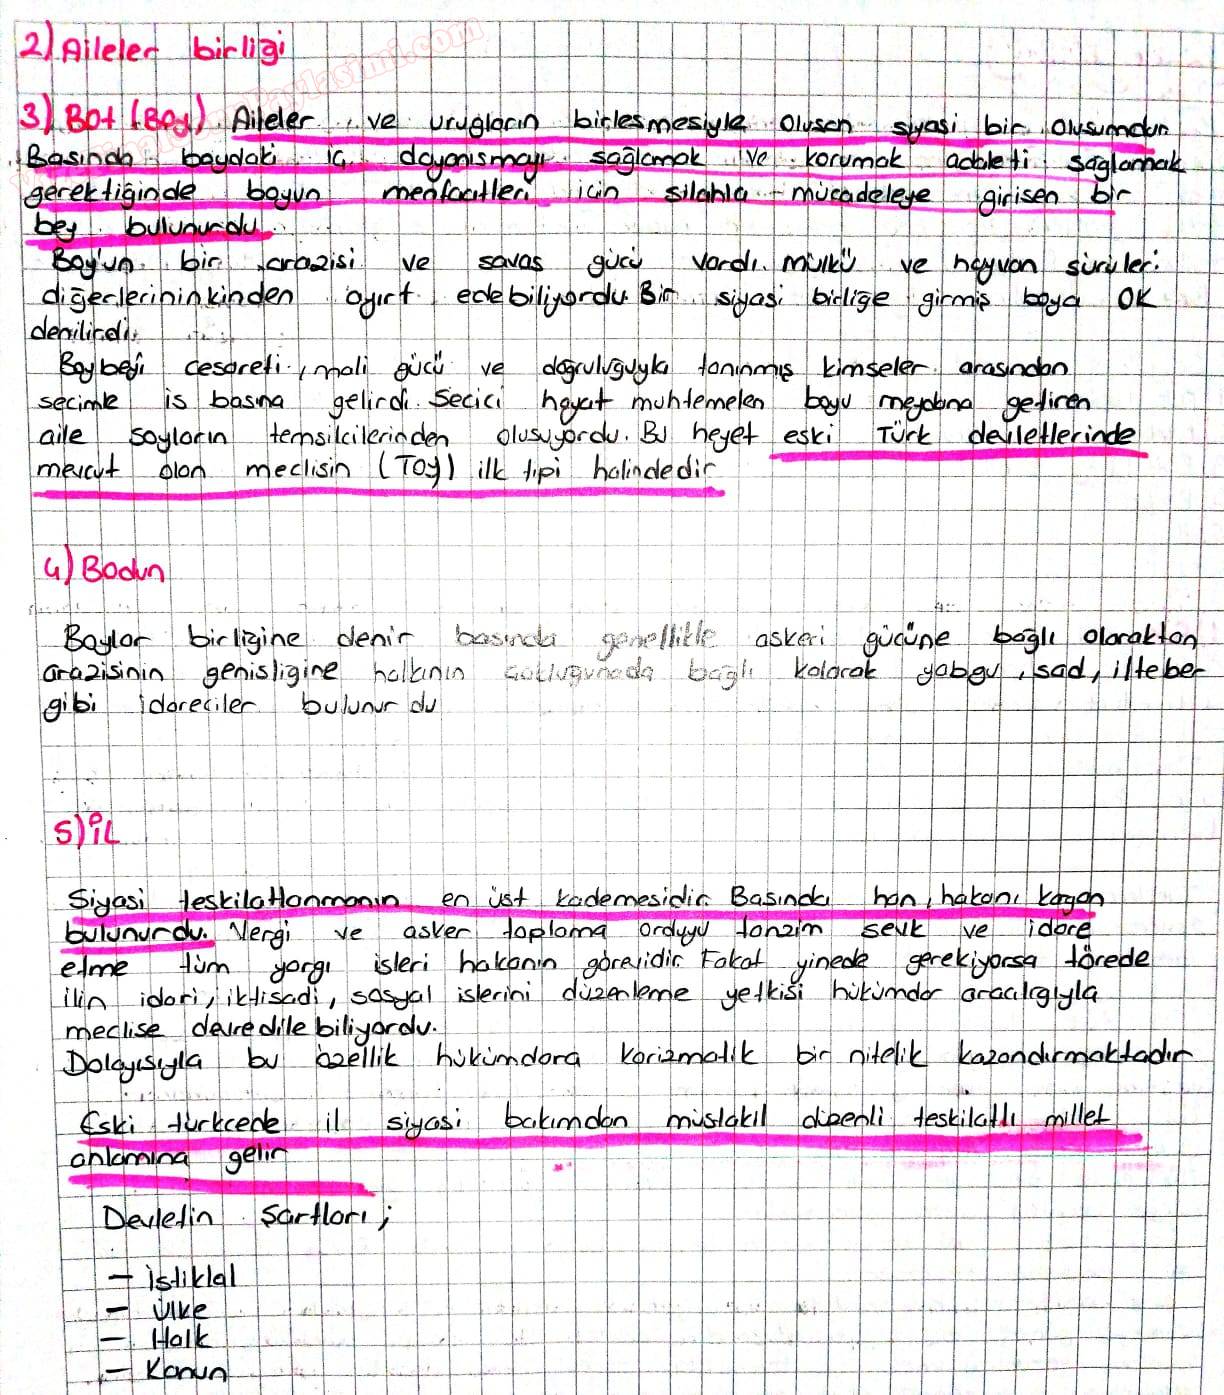 2) Aileler birligi
3) Bot (Boy) Aileler ve urugların birlesmesiyle olusan siyasi bir olusumdur
Basında boydaki iç dayanısmayı sağlamak ve korumak adaleti sağlamak
gerektiğinde boyun menfaatleri icin silahla mücadeleye girisen bir
bey bulunurdu.
Boy'un bir arazisi ve savas gücü vardı. mülkü ve hayvan sürüleri
diğerlerininkinden ayırt edebiliyordu. Bir siyasi birlige girmiş boya OK
denilirdi.
Boybeyi cesareti, mali gücü ve doğruluğuyla tanınmış kimseler arasından
secimle is basına gelirdi. Secici hayat muhtemelen boyu meydana getiren
aile soyların temsilcilerinden olusuyordu. Bu heyet eski Türk devletlerinde
mevcut olan meclisin (Toy) ilk tipi halindedir
4) Bodun
Boylar birliğine denir basında genellikle askeri gücüne bağlı olaraktan
arazisinin genisligine halkının çokluğunada bağlı kalarak yabgu, sad, ilteber
gibi idareciler bulunurdu
5) İL
Siyasi teskilatlanmanın en üst kademesidir. Basında han, hakan, kagan
bulunurdu. Vergi ve asker toplama orduyu tanzim sevk ve idare
etme tüm yargı isleri hakanın görevidir. Fakat yinede gerekiyorsa törede
ilin idari, iktisadi, sosyal islerini düzenleme yetkisi hükümdar aracılıgıyla
meclise devredilebiliyordu.
Dolayısıyla bu özellik hükümdara karizmatik bir nitelik kazandırmaktadır
Eski türkcede il siyasi bakımdan müstakil düzenli teskilatlı millet
anlamına gelir
Devletin Sartları;
- istiklal
- Ülke
- Halk
- Kanun